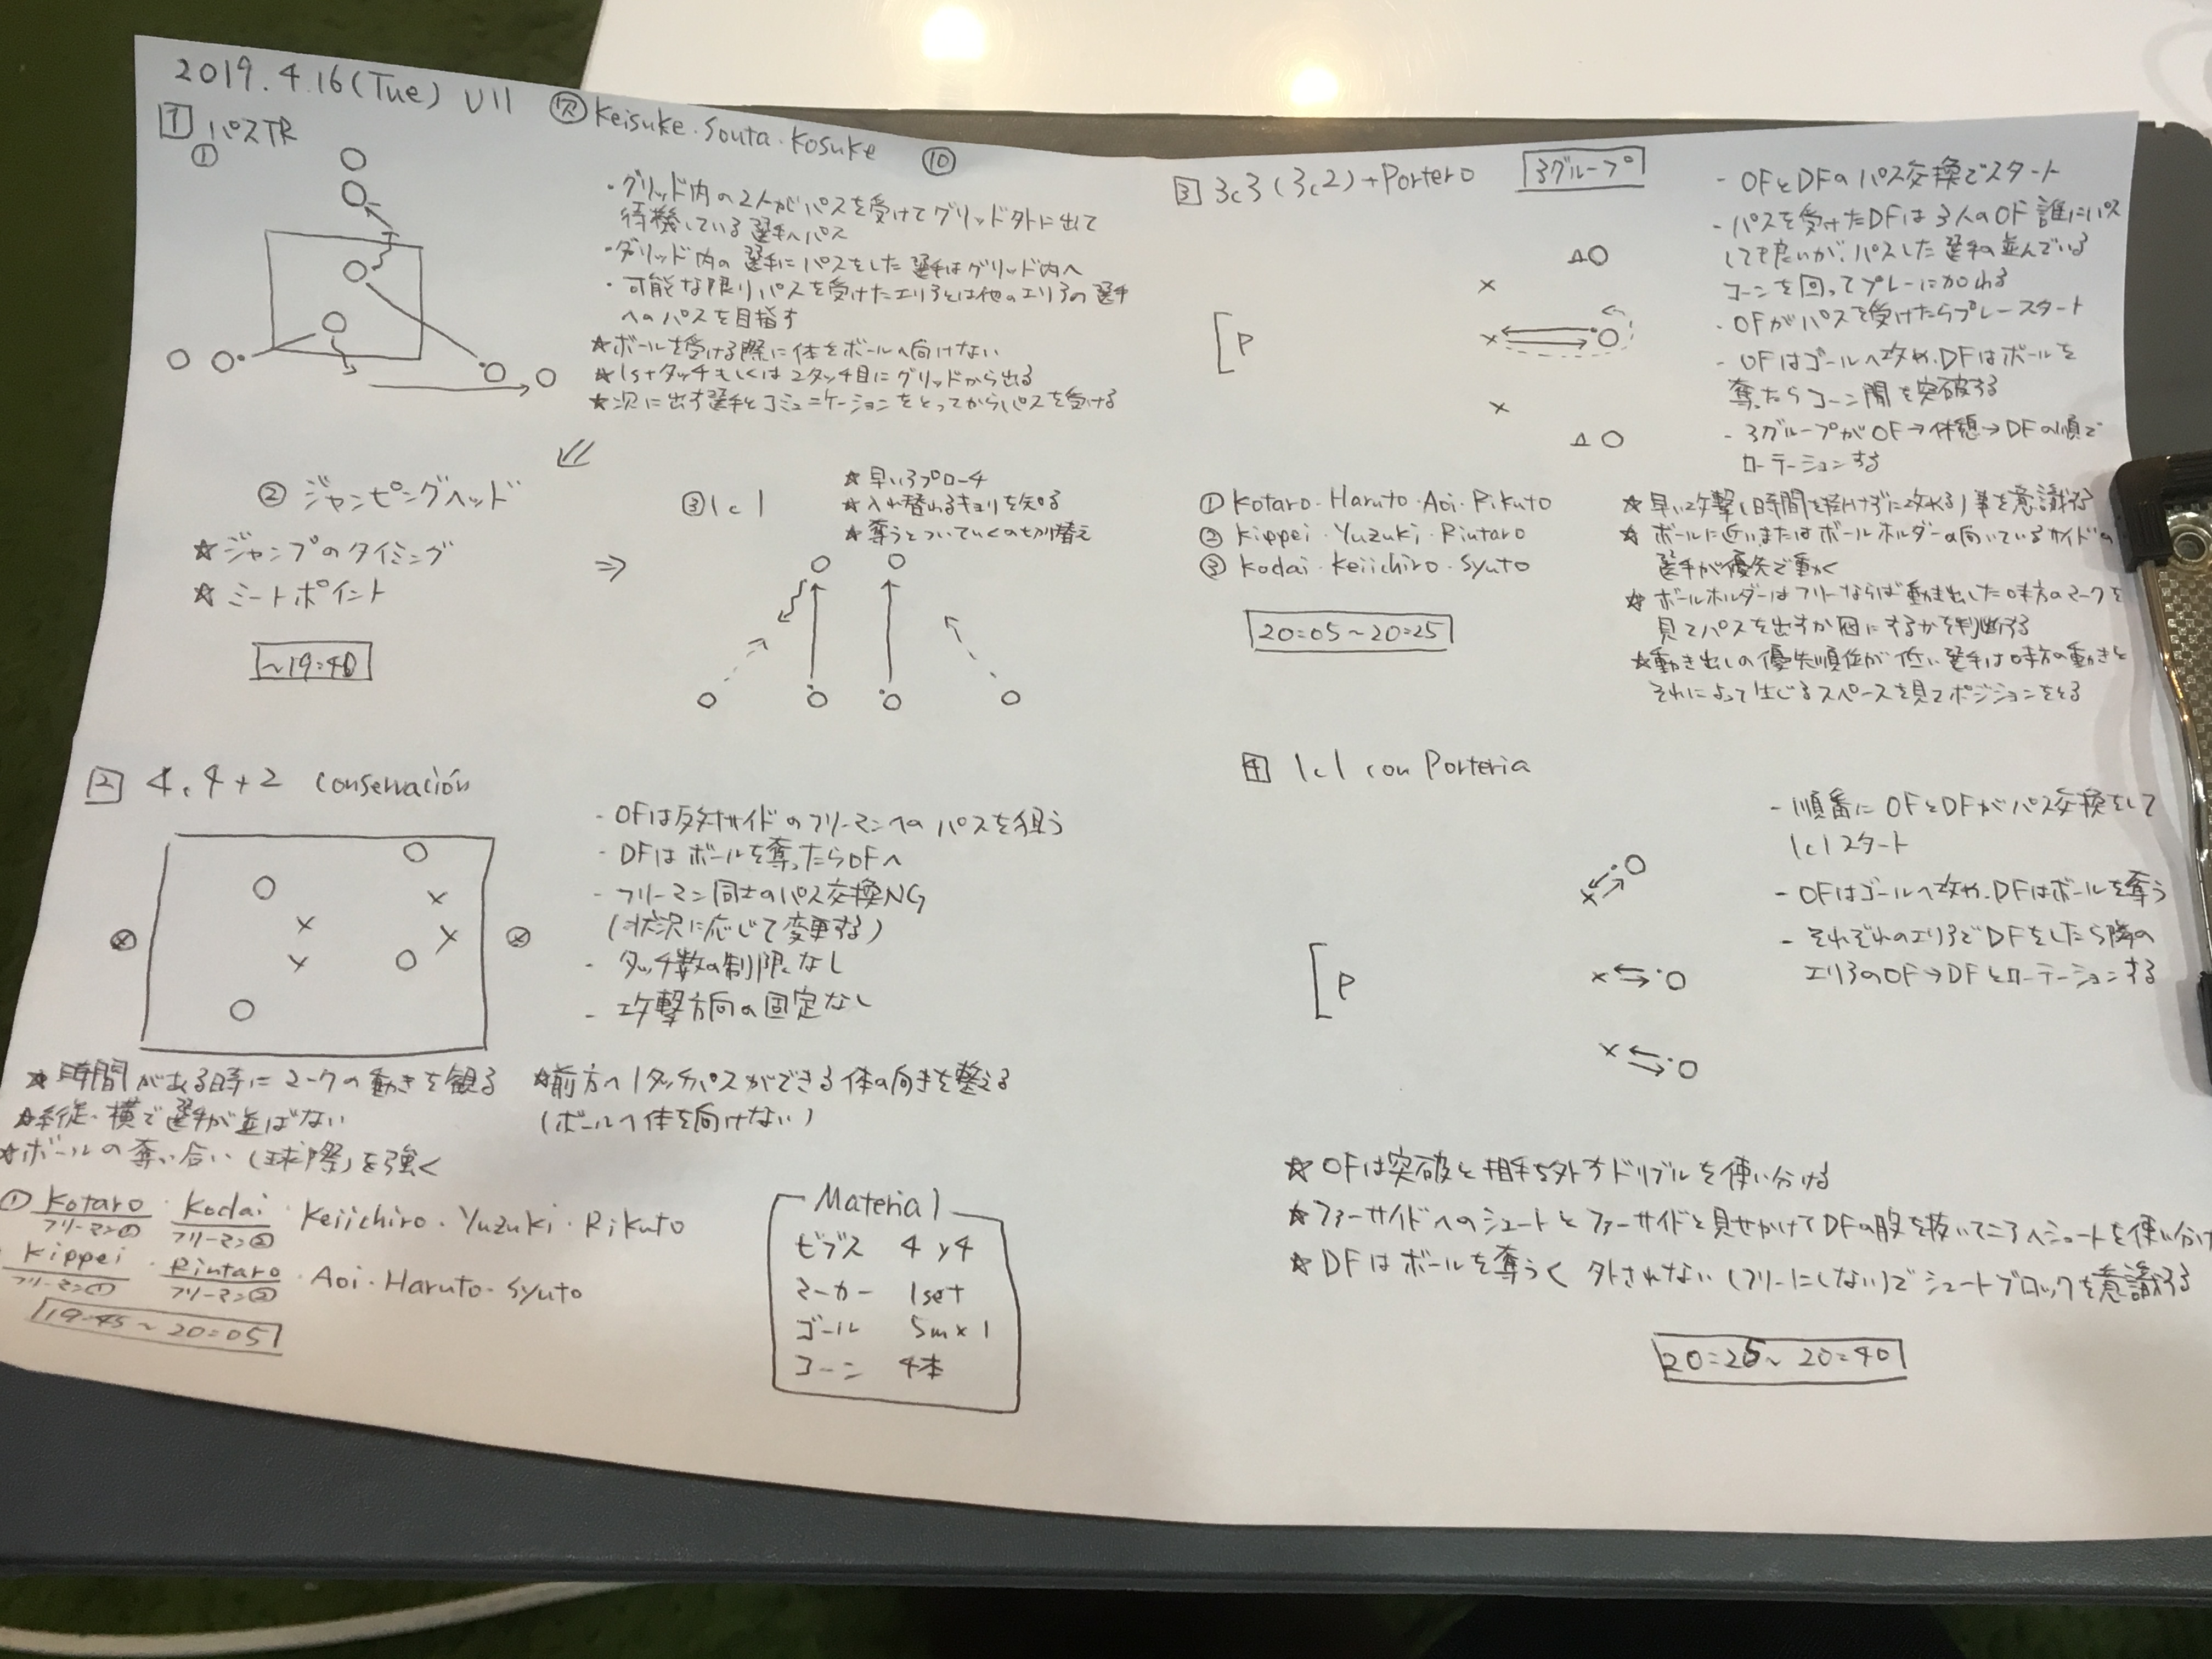 2019.4.16(Tue) U11 欠 Keisuke・Souta・Kosuke ⑩
1 パスTR
①
・グリッド内の2人がパスを受けてグリッド外に出て
待機している選手へパス
・グリッド内の選手にパスをした選手はグリッド内へ
・可能な限りパスを受けたエリアとは他のエリアの選手
へのパスを目指す
☆ボールを受ける際に体をボールへ向けない
☆1stタッチもしくは2タッチ目にグリッドから出る
☆次に出す選手とコミュニケーションをとってからパスを受ける
② ジャンピングヘッド
☆ジャンプのタイミング
☆ミートポイント
~19:40
③ 1c1
☆早いアプローチ
☆入れ替わるキョリを知る
☆奪うとついていくの切り替え
2 4c4+2 Conservación
- OFは反対サイドのフリーマンへのパスを狙う
- DFはボールを奪ったらOFへ
- フリーマン同士のパス交換NG
(状況に応じて変更する)
- タッチ数の制限なし
- 攻撃方向の固定なし
☆時間がある時にマークの動きを観る
☆縦・横で選手が並ばない
☆ボールの奪い合い(球際)を強く
☆前方へ1タッチパスができる体の向きを整える
(ボールへ体を向けない)
① Kotaro・Kodai・Keiichiro・Yuzuki・Rikuto
フリーマン① フリーマン②
Kippei・Rintaro・Aoi・Haruto・Syuto
フリーマン① フリーマン②
19:45~20:05
Material
ビブス 4y4
マーカー 1set
ゴール 5m×1
コーン 4本
3 3c3(3c2)+Portero 3グループ
P
- OFとDFのパス交換でスタート
- パスを受けたDFは3人のOF誰にパス
しても良いが、パスした選手の並んでいる
コーンを回ってプレーに加わる
- OFがパスを受けたらプレースタート
- OFはゴールへ攻め、DFはボールを
奪ったらコーン間を突破する
- 3グループがOF→休憩→DFの順で
ローテーションする
① Kotaro・Haruto・Aoi・Rikuto
② Kippei・Yuzuki・Rintaro
③ Kodai・Keiichiro・Syuto
20:05~20:25
☆早い攻撃(時間を掛けずに攻める)事を意識する
☆ボールに近いまたはボールホルダーの向いているサイドの
選手が優先で動く
☆ボールホルダーはフリーならば動き出した味方のマークを
見てパスを出すか個にするかを判断する
☆動き出しの優先順位が低い選手は味方の動きと
それによって生じるスペースを見てポジションをとる
4 1c1 con Porteria
P
- 順番にOFとDFがパス交換をして
1c1スタート
- OFはゴールへ攻め、DFはボールを奪う
- それぞれのエリアでDFをしたら隣の
エリアのOF→DFとローテーションする
☆OFは突破と相手を外すドリブルを使い分ける
☆ファーサイドへのシュートとファーサイドと見せかけてDFの股を抜いてニアへシュートを使い分け
☆DFはボールを奪うく外されない(フリーにしない)でシュートブロックを意識する
20:25~20:40